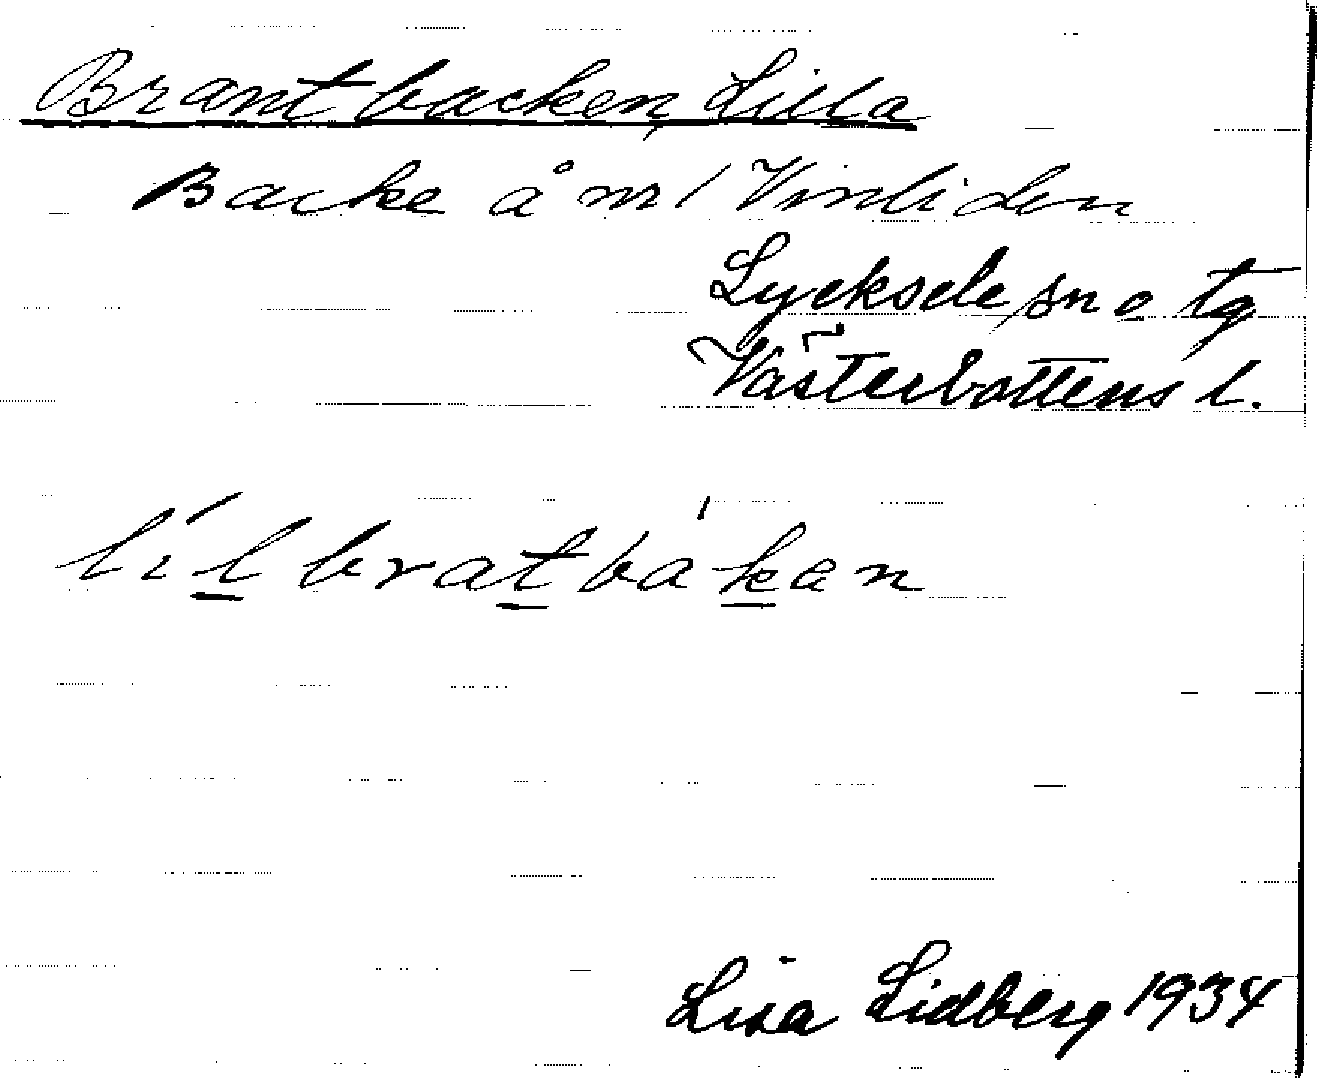 Brantbacken, Lilla
Backe å nr 1 Vinliden
Lycksele sn o tg
Västerbottens l.
lílbratbàkan
Lisa Lidberg 1934